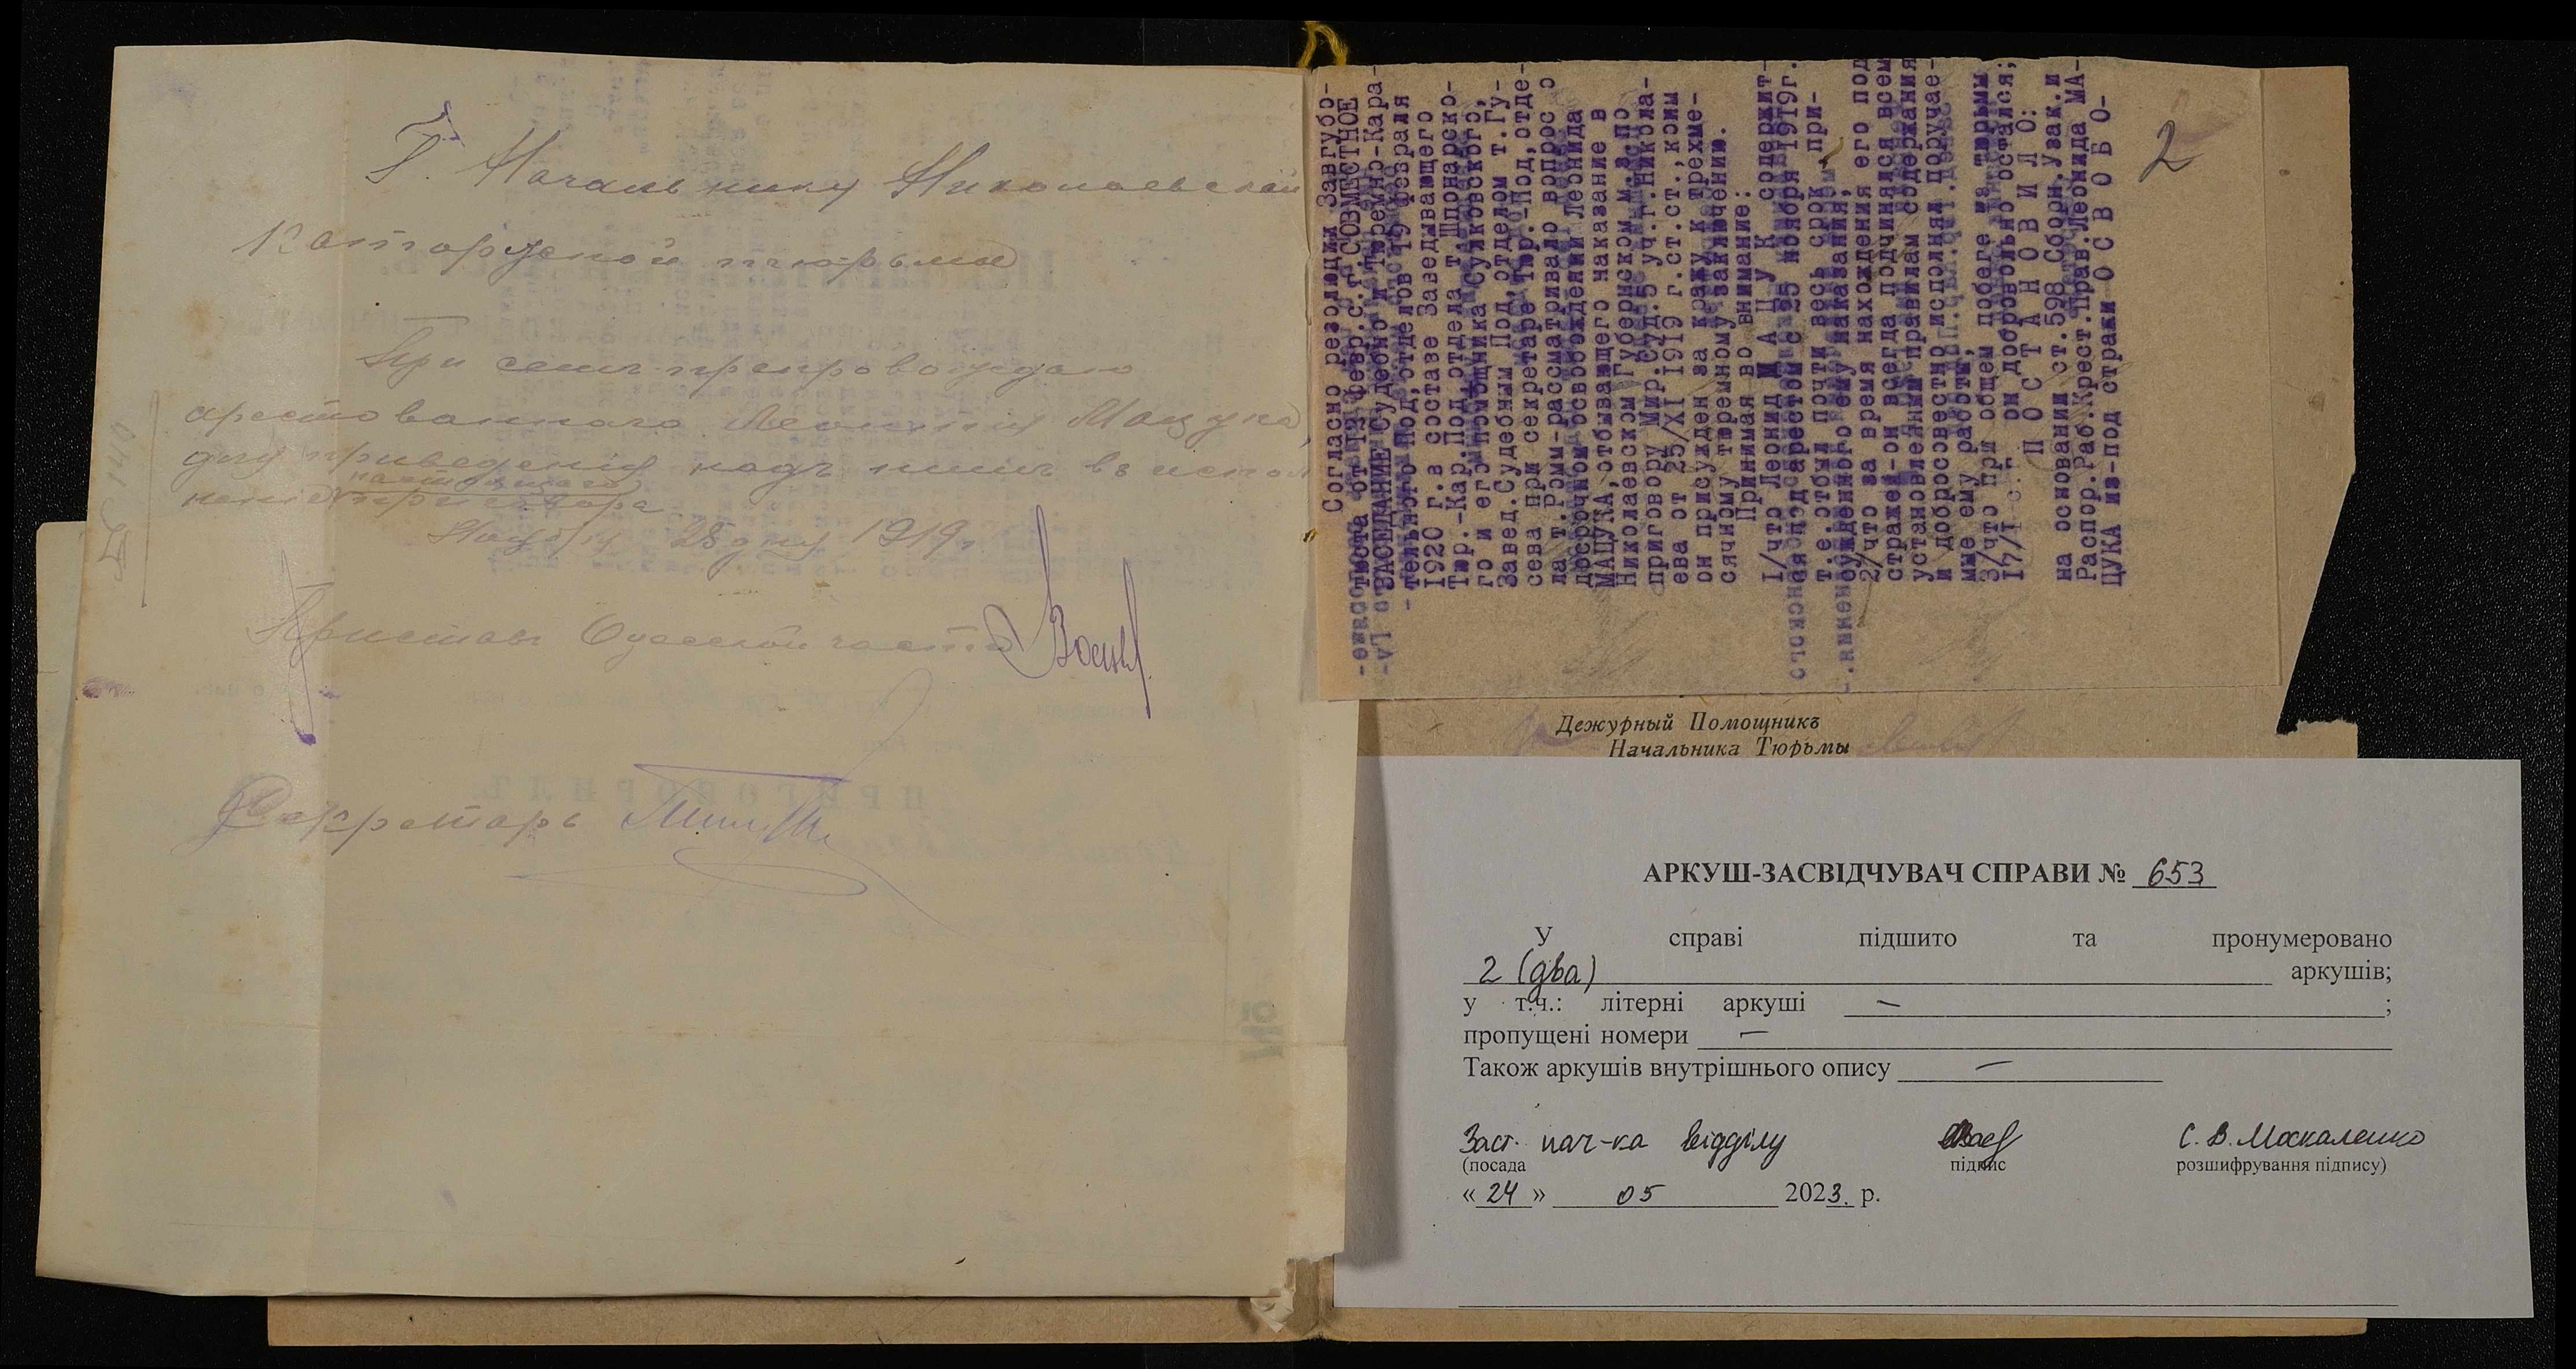 Г. Начальнику Николаевской
Каторжной тюрьмы
При семъ препровождаю
арестованнаго Леонида Мацука,
для приведенія надъ нимъ въ испол
неніе настоящаго
приговора
Ноября 25 дня 1919 г.
Приставъ Одесской части
Секретарь
Согласно резолюции Завгубю-
ста от 13 февр.с.г. СОВМЕСТНОЕ
ЗАСЕДАНИЕ Судебно и Тюремно-Кара-
тельного Под,отделов 19 февраля
1920 г.в составе Заведывающего
Тюр.-Кар.Под,отдела т.Шпонарско-
го и его помощника Сулковского,
Завед.Судебным Под,отделом т.Гу-
сева при секретаре Тюр.-Под,отде-
ла т.Ромм-рассматривало вопрос о
досрочном освобождении Леонида
МАЦУКА, отбывающего наказание в
Николаевском Губернском м.з.по
приговору Мир.Суд.5 уч.г.Никола-
ева от 25/XI 1919 г.ст.ст.,коим
он присужден за кражу к трехме-
сячному тюремному заключению.
Принимая во внимание:
1/что Леонид М А Ц У К содержит-
ся под арестом с 25 ноября 1919г.
т.е.отбыл почти весь срок при-
сужденного ему наказания,
2/что за время нахождения его под
стражей-он всегда подчинялся всем
установленным правилам содержания
и добросовестно исполнял поручае-
мые ему работы,
3/что при общем побеге из тюрьмы
17/I с.г. он добровольно остался;
П О С Т А Н О В И Л О:
на основании ст.598 Сборн.узак.и
Распор.Раб.Крест.Прав.Леонида МА-
ЦУКА из-под стражи О С В О Б О-
2
Дежурный Помощникъ
Начальника Тюрьмы
АРКУШ-ЗАСВІДЧУВАЧ СПРАВИ № 653
У справі підшито та пронумеровано
2 (два) аркушів;
у т.ч.: літерні аркуші — ;
пропущені номери —
Також аркушів внутрішнього опису —
Заст. нач-ка відділу С. В. Москаленко
(посада підпис розшифрування підпису)
« 24 » 05 2023. р.